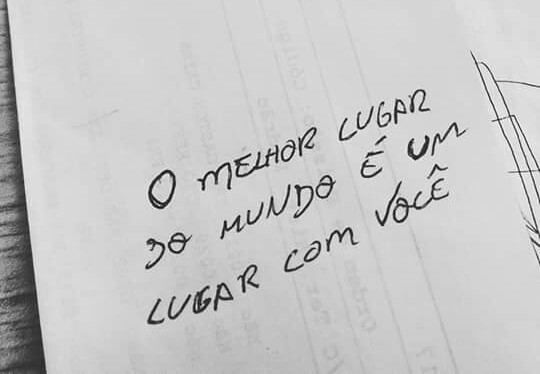 O MELHOR LUGAR
DO MUNDO É UM
LUGAR COM VOCÊ